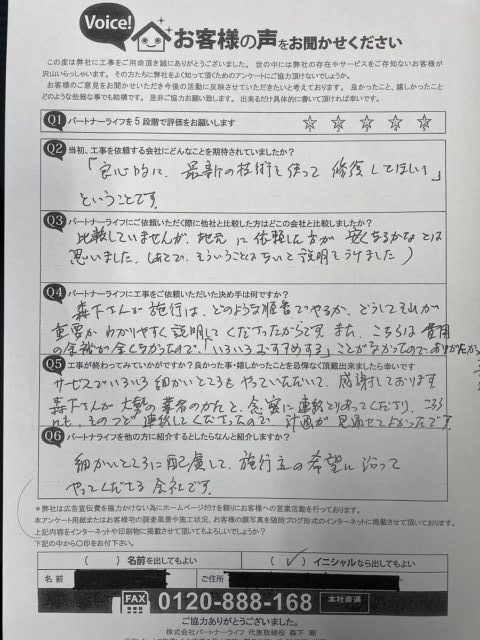 Voice!
お客様の声をお聞かせください
この度は弊社に工事をご用命頂き誠にありがとうございました。世の中には弊社の存在やサービスをご存知ないお客様が
沢山いらっしゃいます。その方たちに弊社をよく知って頂くためのアンケートにご協力頂けないでしょうか。
お客様のご意見をお聞かせいただき今後の活動に反映させていただきたいと考えております。良かったこと、嬉しかったこと
どのような些細な事でも結構です。是非ご協力お願い致します。出来るだけ具体的に書いて頂ければ幸いです。
Q1 パートナーライフを5段階で評価をお願いします ☆ ☆ ☆ ☆ ☆
Q2 当初、工事を依頼する会社にどんなことを期待されていましたか?
「良心的に、最新の技術を使って修復してほしい」
ということです。
Q3 パートナーライフにご依頼いただく際に他社と比較した方はどこの会社と比較しましたか?
比較していませんが、地元に依頼した方が安くなるかなとは
思いました。(あとで、そういうことはないと説明をうけました)
Q4 パートナーライフに工事をご依頼いただいた決め手は何ですか?
森下さんが施行は、どのような順番でやるか、どうしてそれが
重要かわかりやすく説明してくださったからです。また、こちらは費用
の余裕が全くなかったので、「いろいろおすすめする」ことがなかったのでありがたかった
Q5 工事が終わってみていかがですか?良かった事・嬉しかったことを忌憚なく頂戴出来ましたら幸いです
サービスでいろいろ細かいところもやっていただいて、感謝しております
森下さんが大勢の業者のかたと、念密に連絡とりあってくださり、こちら
にも、そのつど連絡してくださったので、計画が見通せてよかったです。
Q6 パートナーライフを他の方に紹介するとしたらなんと紹介しますか?
細かいところに配慮して、施行主の希望に沿って
やってくださる会社です。
*弊社は広告宣伝費を極力かけない為にホームページだけを頼りにお客様への営業活動を行っております。
本アンケート用紙またはお客様宅の調査風景や施工状況、お客様の顔写真を随時ブログ形式のインターネットに掲載させて頂いております。
上記内容をインターネットや印刷物に掲載させて頂いてもよろしいでしょうか?
下記の中から〇印をお付下さい。
( ) 名前を出してもよい ( ✓ ) イニシャルなら出してもよい
名前 ご住所
FAX 0120-888-168 本社直通
ご協力ありがとうございました。
株式会社パートナーライフ 代表取締役 森下 剛